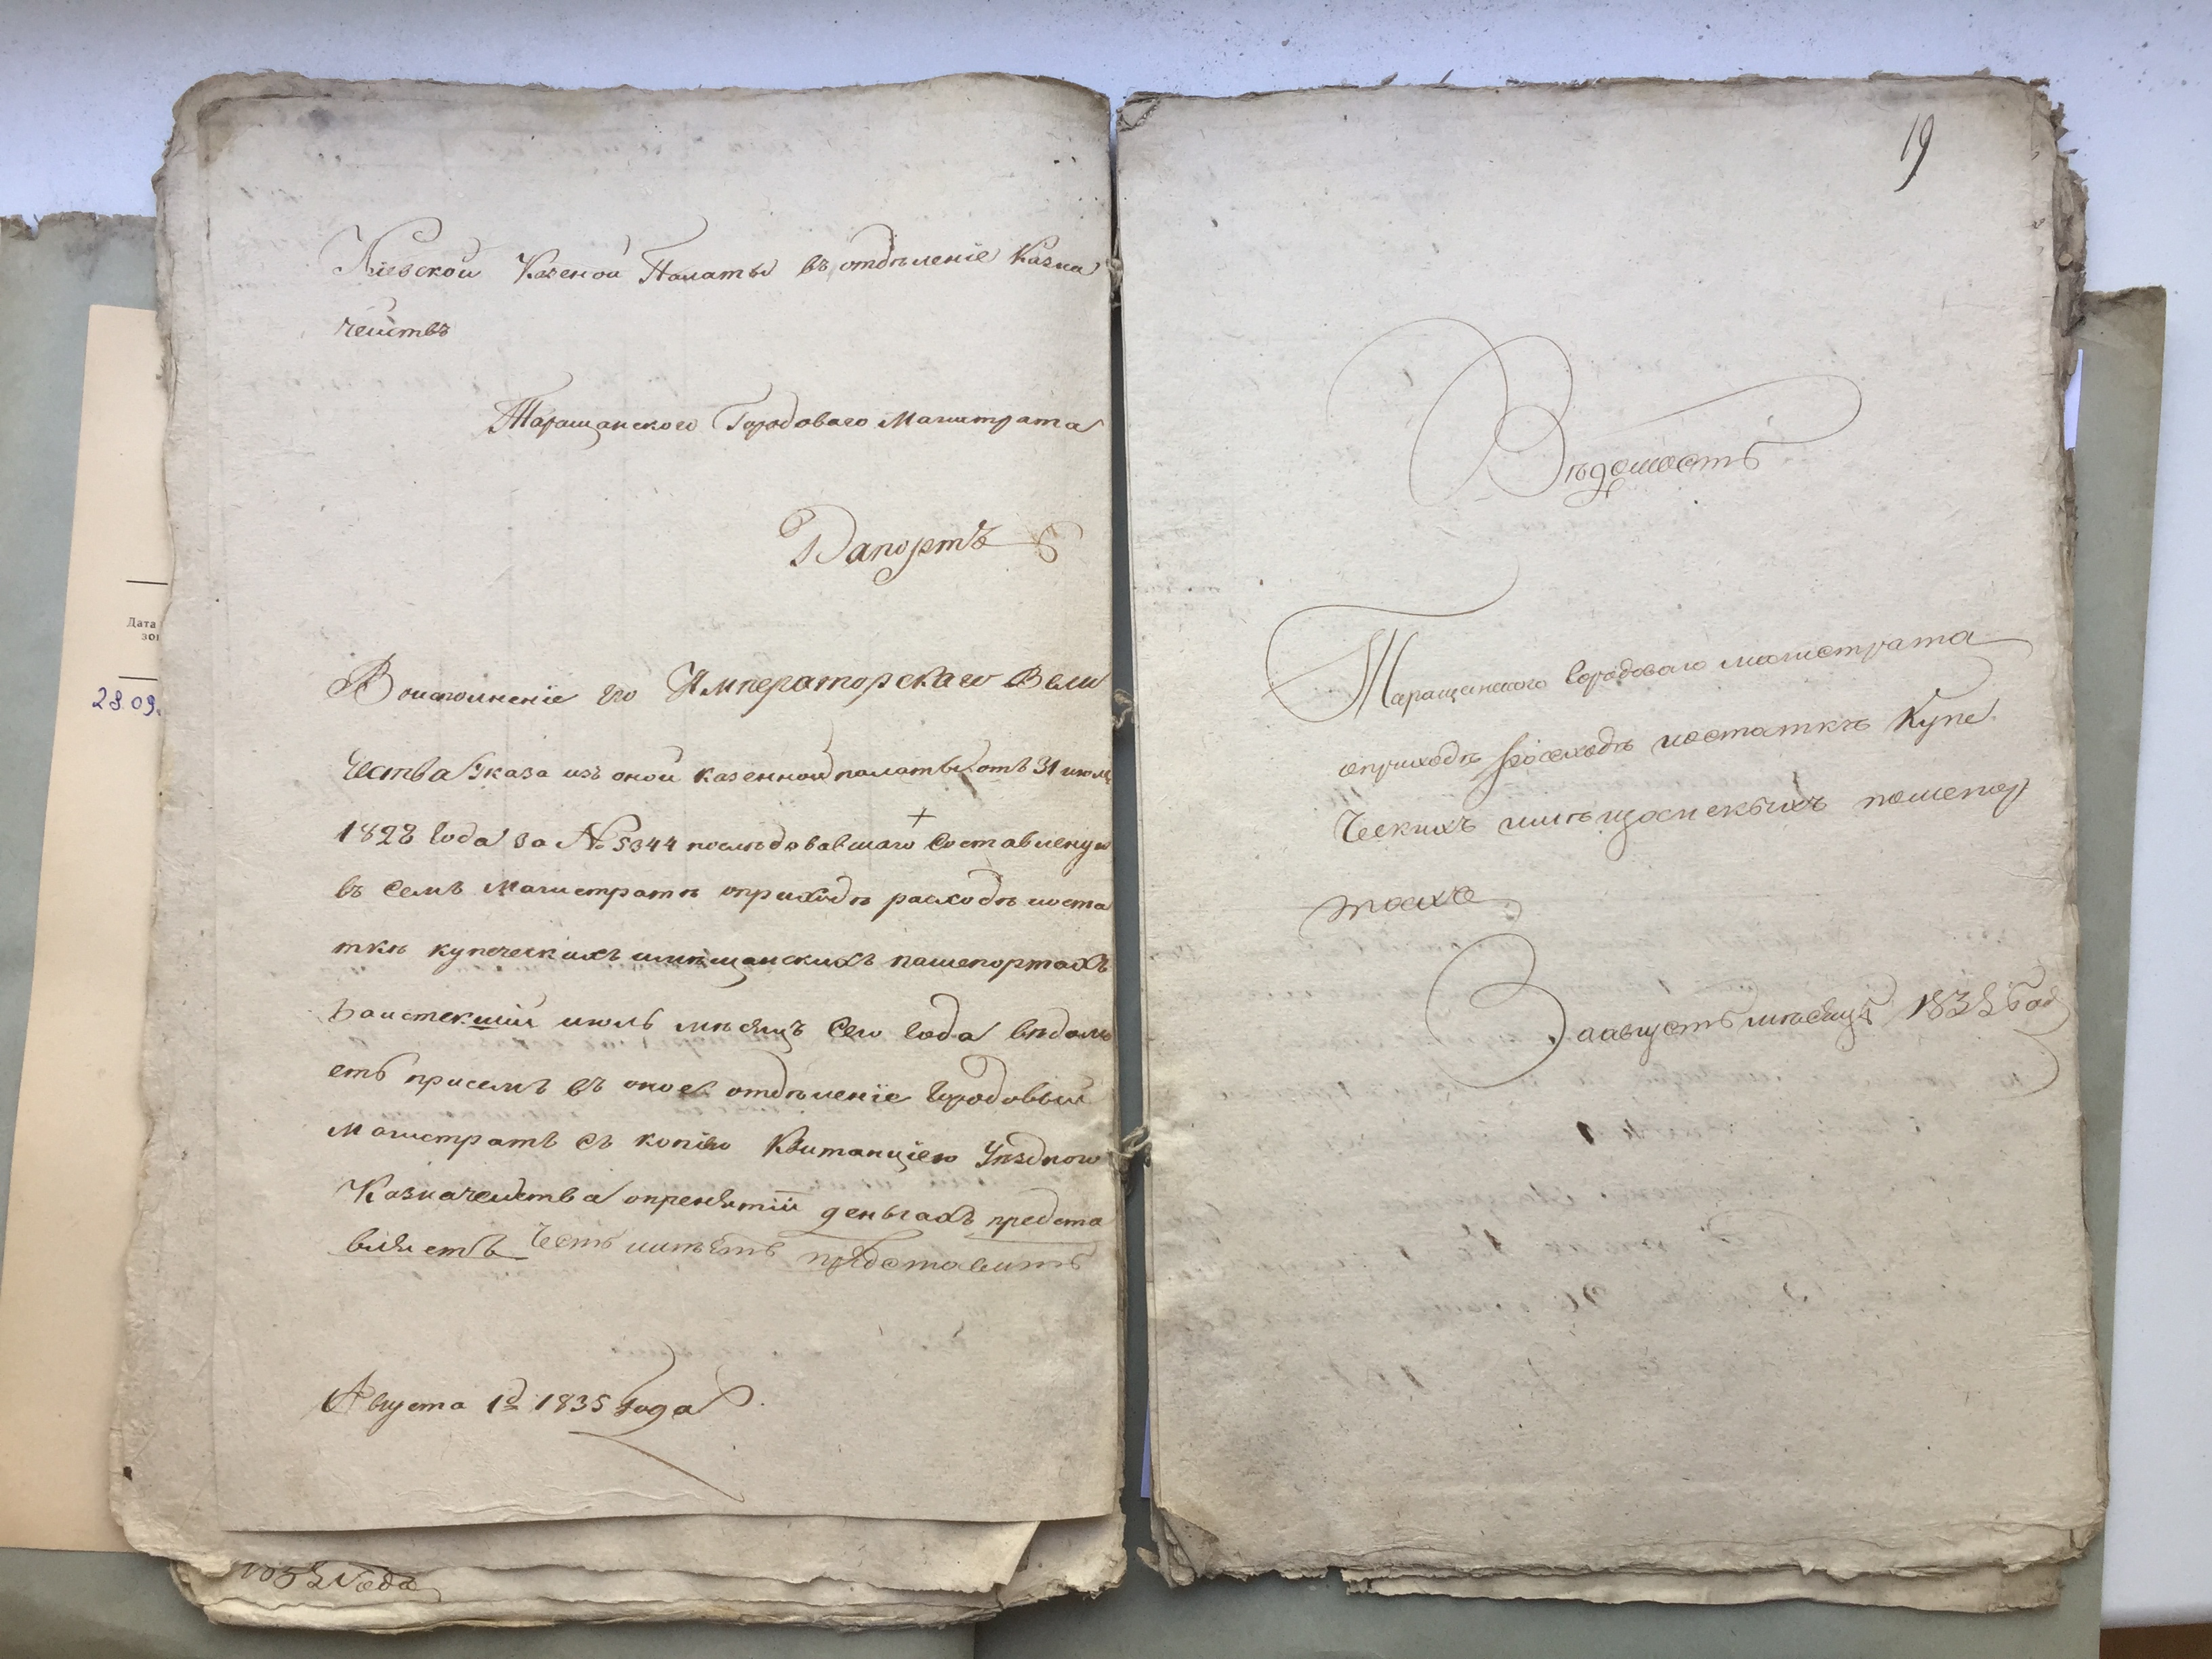 Кіевской Казеной Палаты въ отдѣленіе Казна
чействъ
Таращанского Городоваго Магистрата
Рапортъ
Воисполненіе Его Императорскаго Вели
чества Указа изъ оной казенной палаты отъ 31 июля
1828 Года За № 5344 последовавшаго Составленую
въ Семъ Магистратѣ оприходѣ расходѣ иоста
ткѣ купеческихъ имѣщанскихъ пашепортахъ
Заистекший июль мѣсяцъ Сего Года вѣдомо
сть присемъ въ оное отдѣленіе Городовый
Магистратъ съ копіею Квитанціею Уѣздного
Казначейства опренятіи деньгахъ предста
вляетъ Честь имѣетъ представить
Августа 1д 1835 Года
1835 Года
19
Вѣдомость
Таращанского Городоваго магистрата
оприходѣ росходѣ иостаткѣ Купе
Ческихъ имѣщанскихъ пошепор
тахъ
Заавгустъ мѣсяцъ 1835 Год
Дата
28.09.